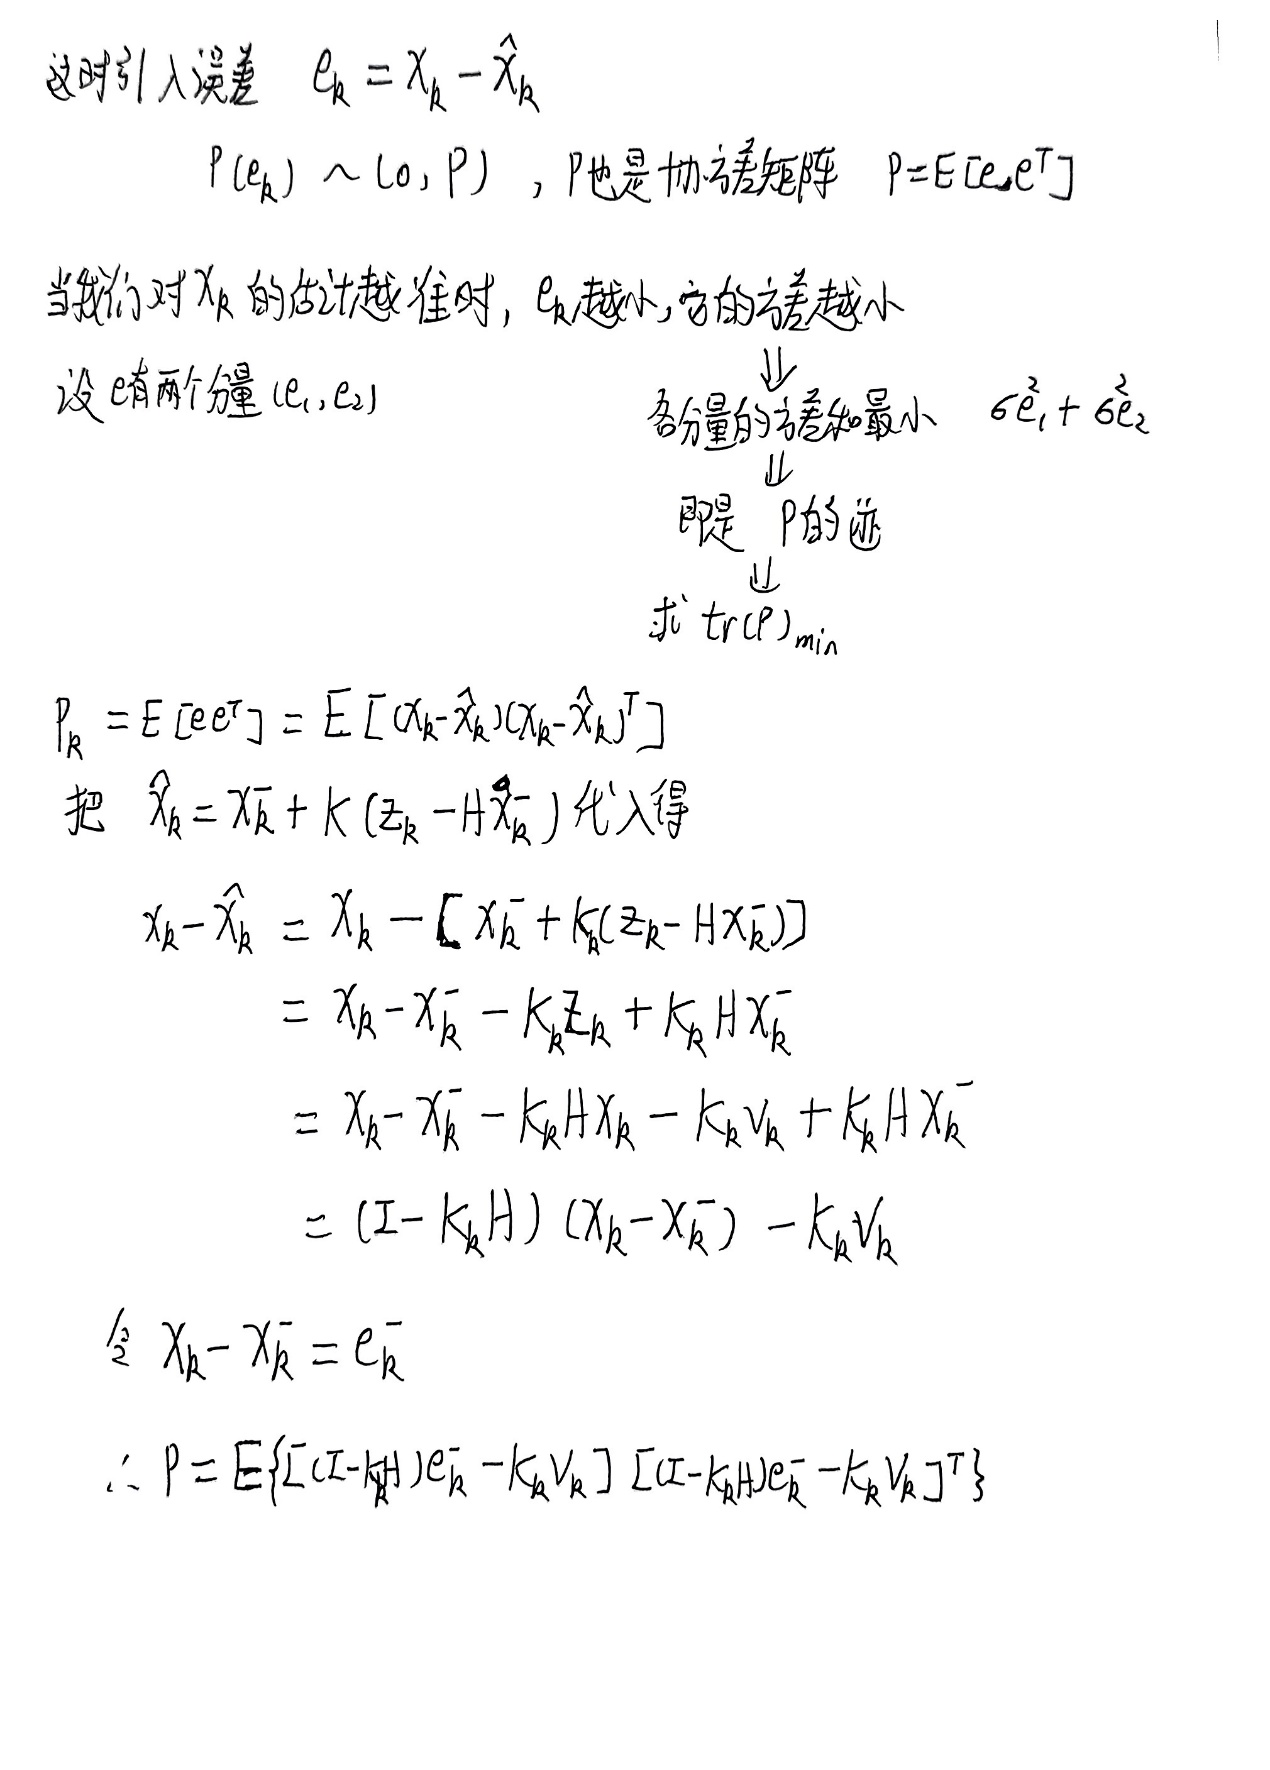 这时引入误差 eₖ = xₖ - x̂ₖ
P(eₖ) ~ (0, P) , P也是协方差矩阵 P=E[e,eᵀ]
当我们对xₖ的估计越准时, eₖ越小, 它的方差越小
⇓
设e有两个分量(e₁,e₂) 各分量的方差和最小 σ²e₁ + σ²e₂
⇓
即是 P的迹
⇓
求 tr(P)min
Pₖ = E[eeᵀ] = E[(xₖ-x̂ₖ)(xₖ-x̂ₖ)ᵀ]
把 x̂ₖ = xₖ⁻ + K(zₖ - Hxₖ⁻) 代入得
xₖ - x̂ₖ = xₖ - [xₖ⁻ + Kₖ(zₖ - Hxₖ⁻)]
= xₖ - xₖ⁻ - Kₖzₖ + KₖHxₖ⁻
= xₖ - xₖ⁻ - KₖHxₖ - Kₖvₖ + KₖHxₖ⁻
= (I - KₖH)(xₖ - xₖ⁻) - Kₖvₖ
令 xₖ - xₖ⁻ = eₖ⁻
∴ P = E{[(I-KₖH)eₖ⁻ - Kₖvₖ][(I-KₖH)eₖ⁻ - Kₖvₖ]ᵀ}